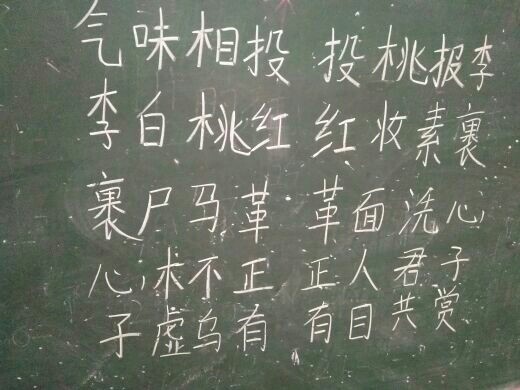 气味相投 投桃报李
李白桃红 红妆素裹
裹尸马革 革面洗心
心术不正 正人君子
子虚乌有 有目共赏